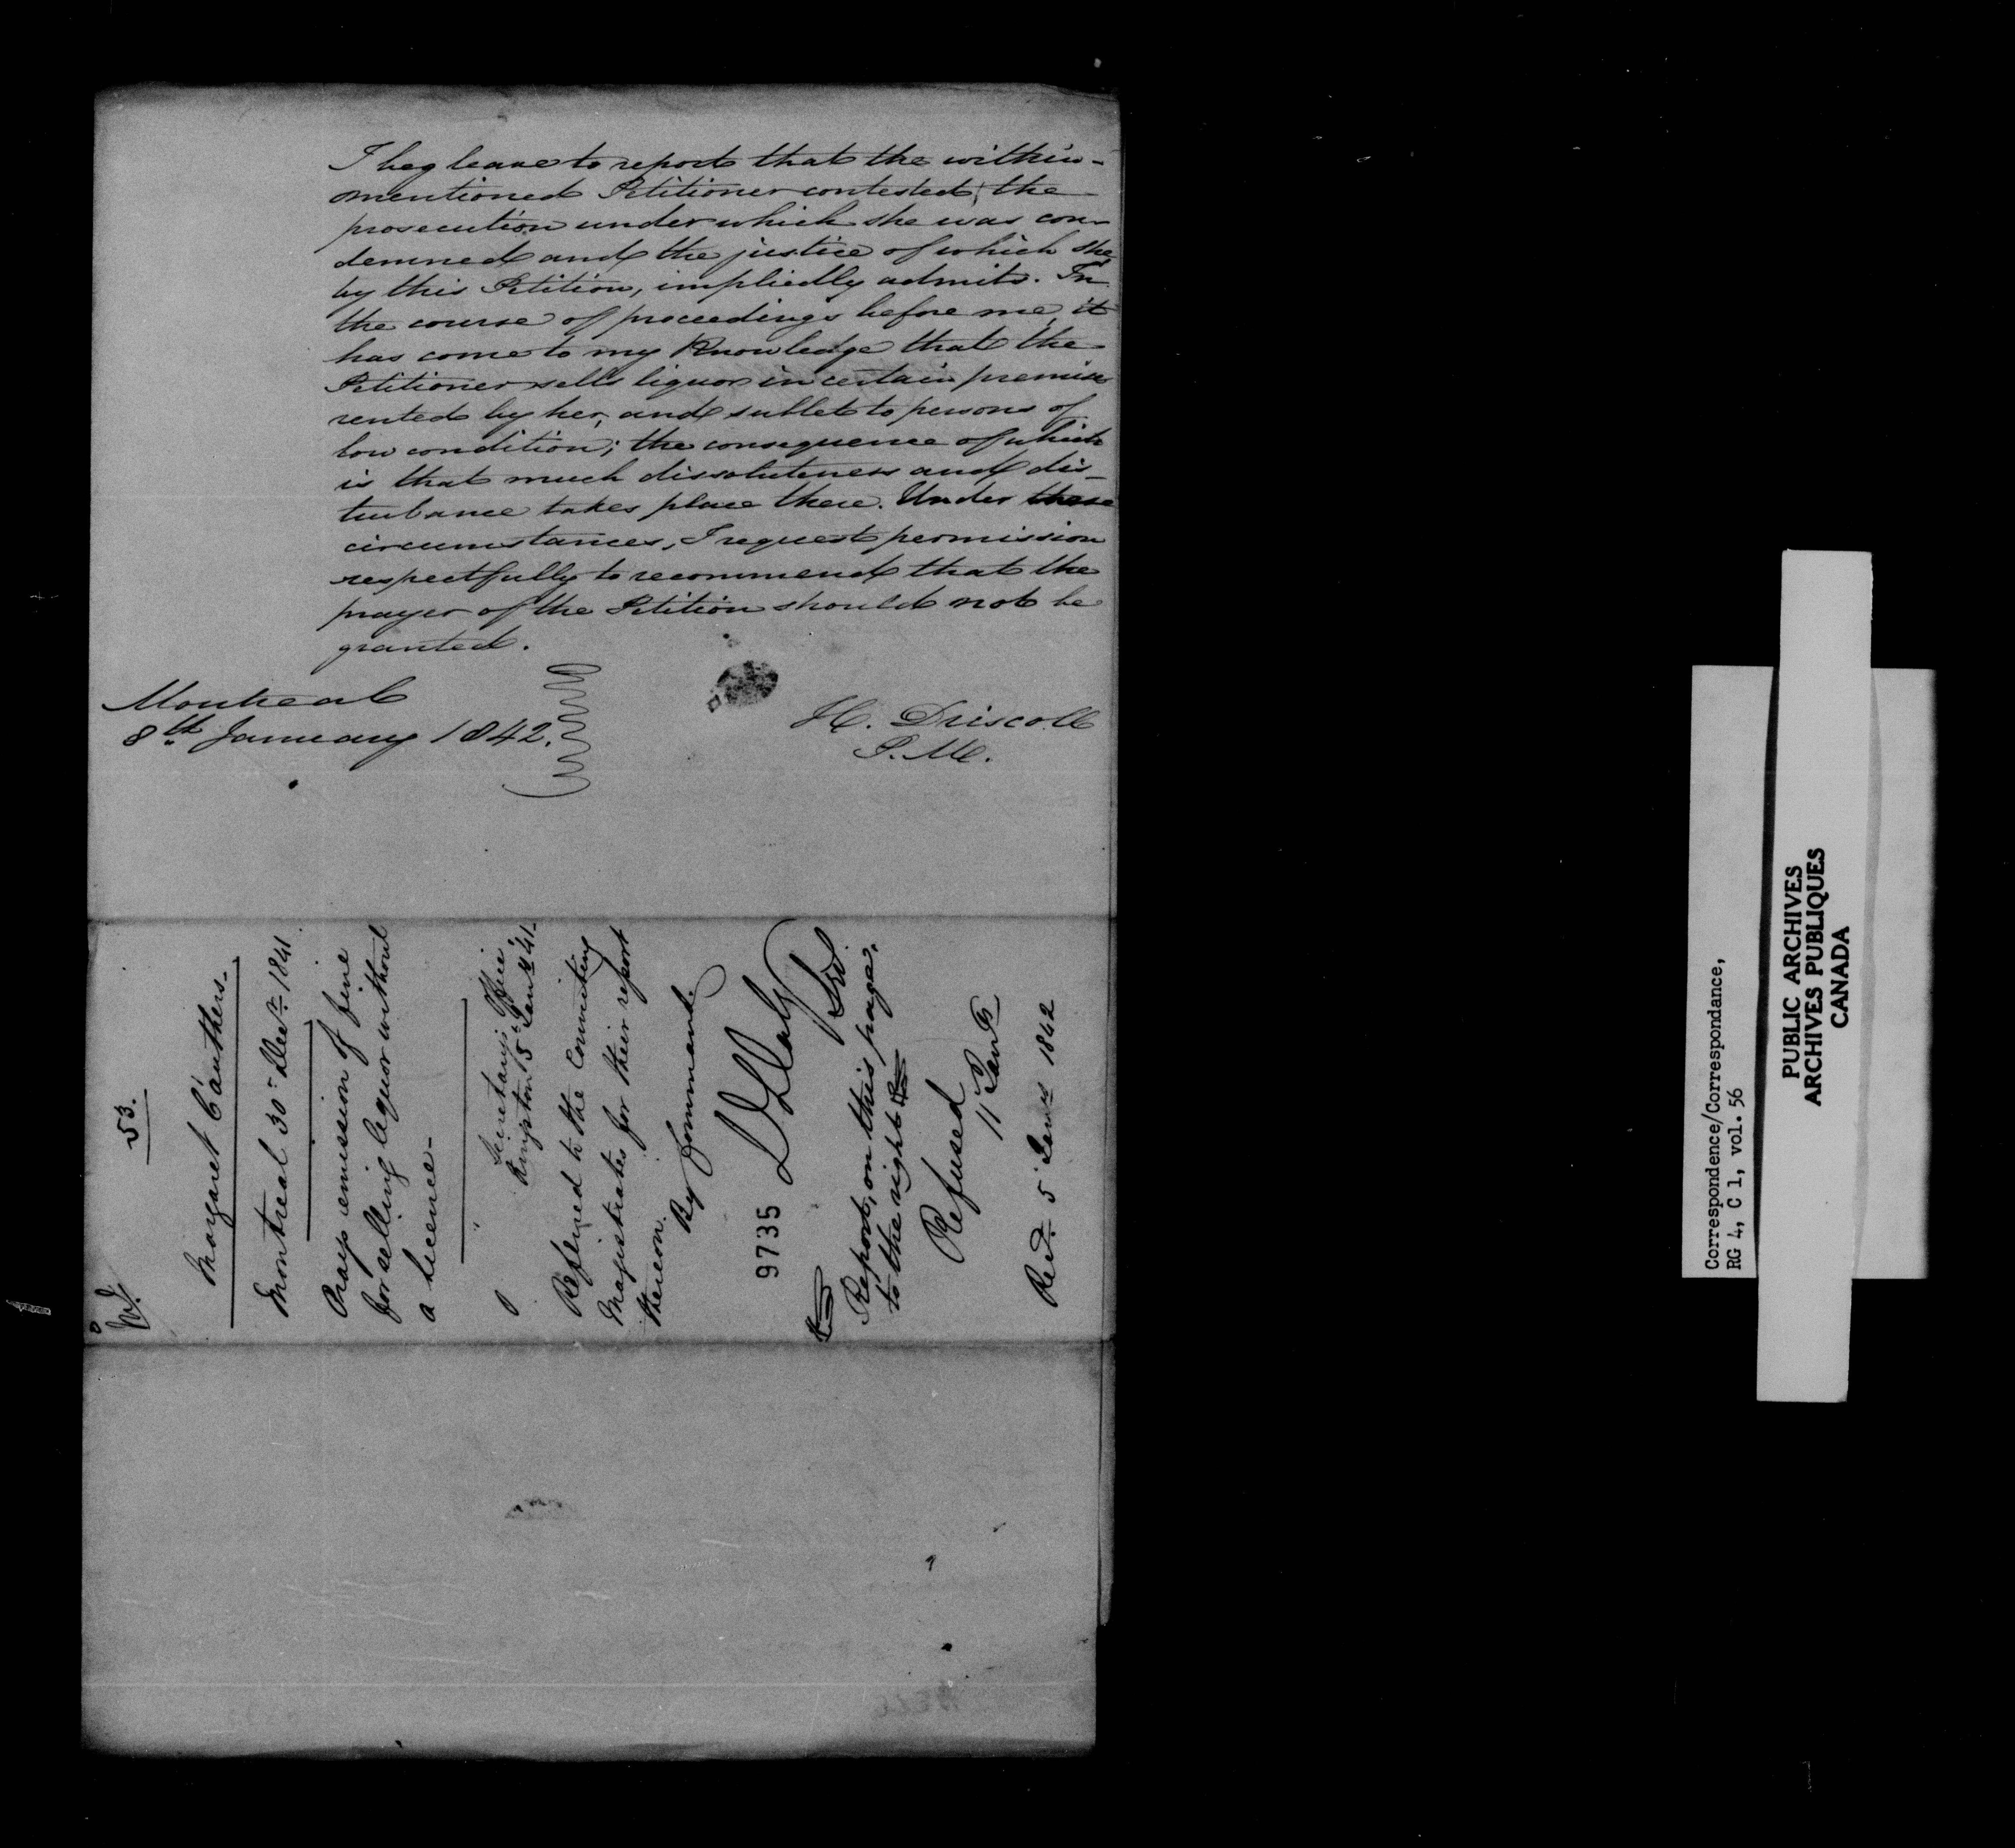 I beg leave to report that the within-
mentioned Petitioner contested, the
prosecution under which she was con-
demned and the justice of which she
by this Petition, impliedly admits. In
the course of proceedings before me, it
has come to my Knowledge that the
Petitioner sells liquor in certain premises
rented by her, and sublet to persons of
low condition; the consequence of which
is that much dissoluteness and dis-
turbance takes place there. Under these
circumstances, I request permission
respectfully to recommend that the
prayer of the Petition should not be
granted.
Montreal
8th January 1842.
H. Driscoll
P. M.
53.
Margaret Cauthers.
Montreal 30 Decr 1841
Prays remission of fine
for selling liquor without
a licence-
Secretary's Office
Kingston 5 Jany 41-
Referred to the Convicting
Magistrates for their report
thereon.
By Command.
D Daly
Sec.
9735
Report, on this page,
to the right
Refused
11 Jany
Recd. 5 Jany 1842
Correspondence/Correspondance,
RG 4, C 1, vol. 56
PUBLIC ARCHIVES
ARCHIVES PUBLIQUES
CANADA